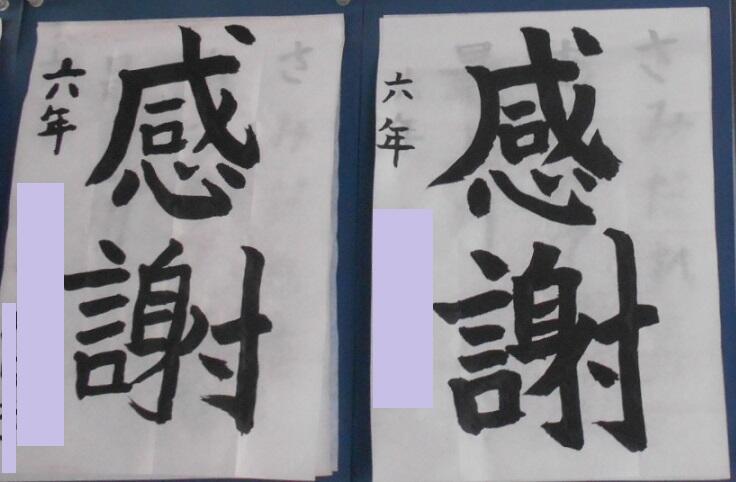 感謝
六年
感謝
六年